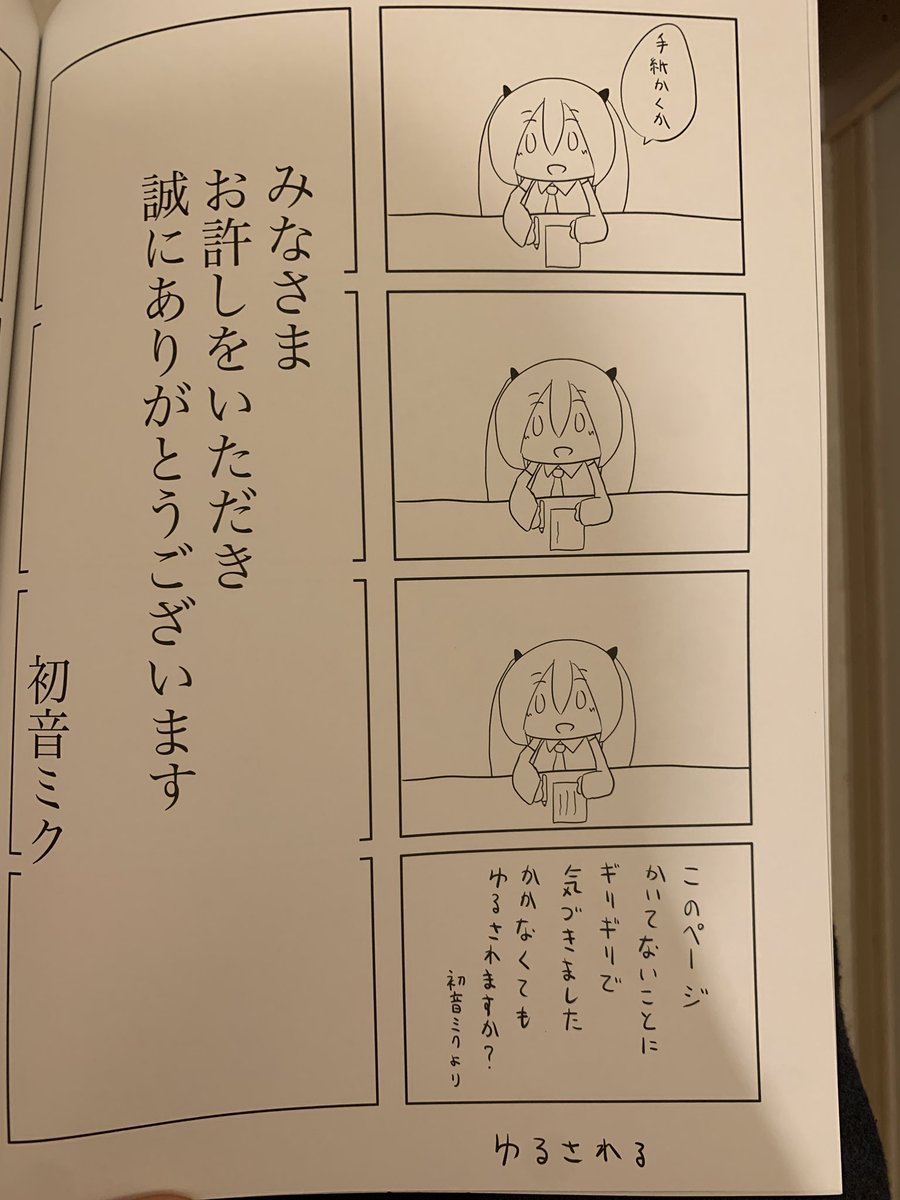 手紙かくか
このページ
かいてないことに
ギリギリで
気づきました
かかなくても
ゆるされますか?
初音ミクより
ゆるされる
みなさま
お許しをいただき
誠にありがとうございます
初音ミク